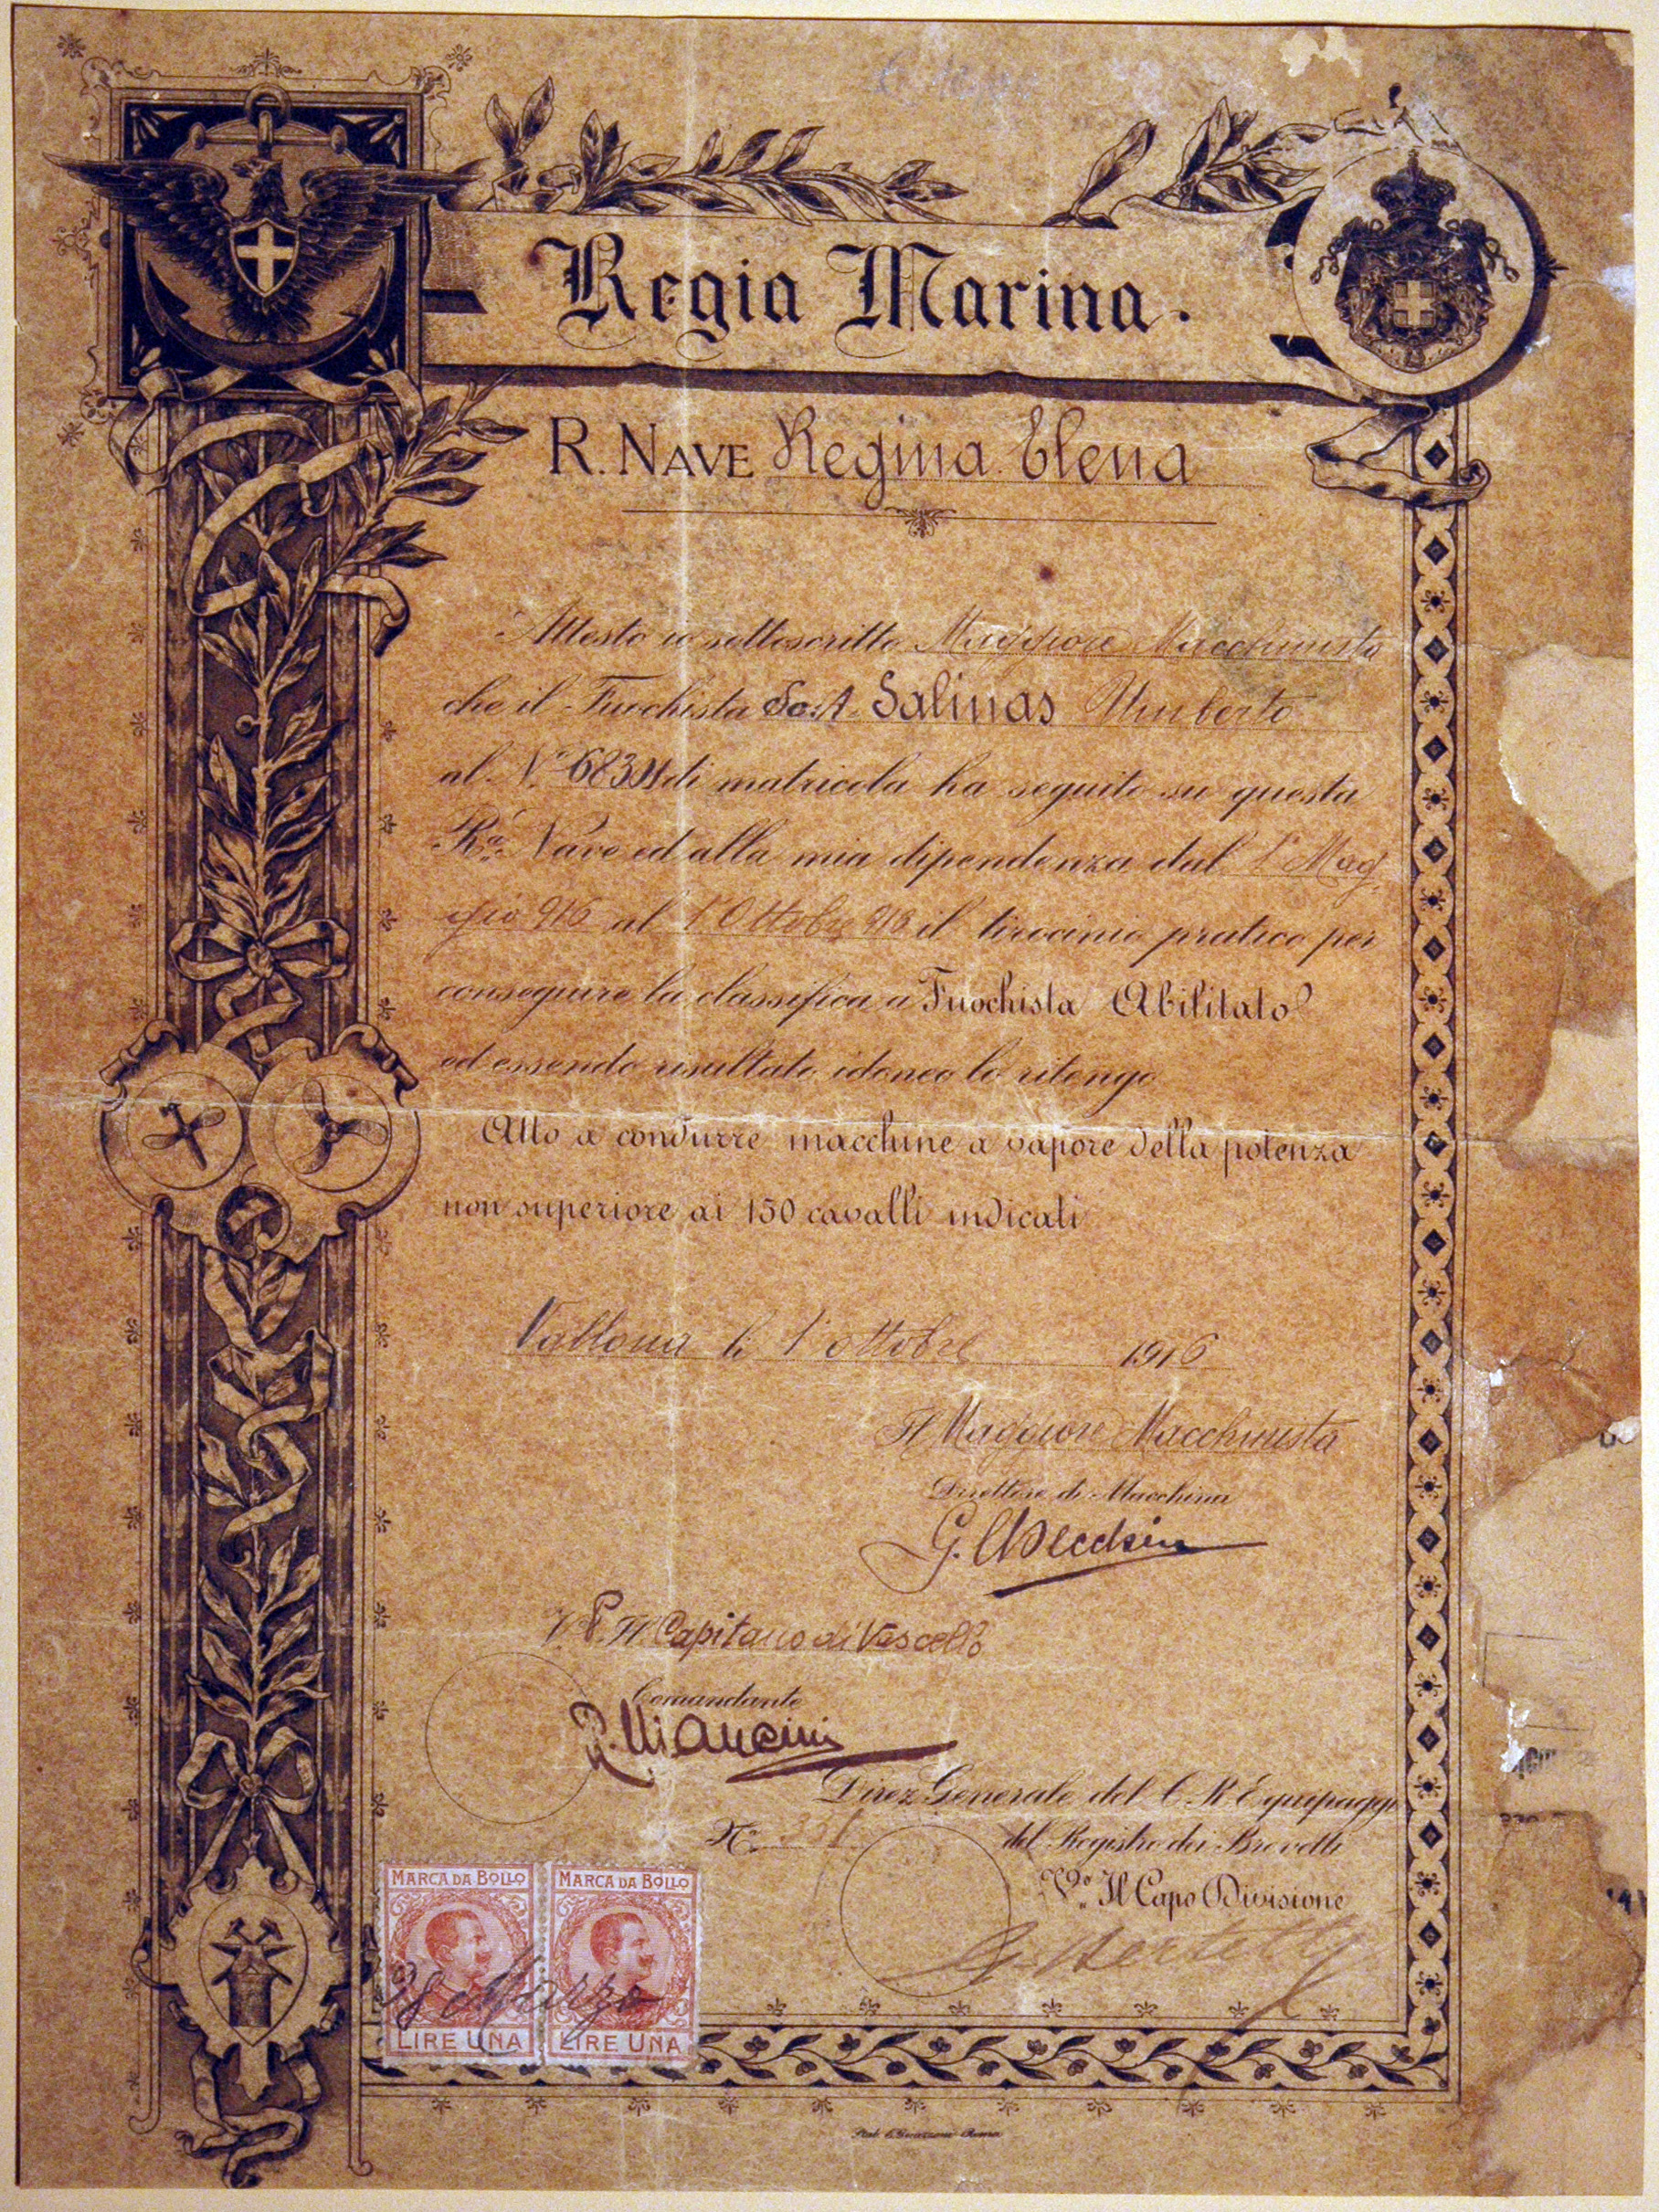 Regia Marina.
R. NAVE Regina Elena
Attesto io sottoscritto Maggiore Macchinista
che il Fuochista Sc. A. Salinas Umberto
al N.º di matricola ha seguito su questa
Rª Nave ed alla mia dipendenza dal 1º Mag-
gio 916 al 1º Ottobre 916 il tirocinio pratico per
conseguire la classifica a Fuochista Abilitato
ed essendo risultato idoneo lo ritengo
Atto a condurre macchine a vapore della potenza
non superiore ai 150 cavalli indicati
Vallona li 1º ottobre 1916
Il Maggiore Macchinista
Direttore di Macchina
G.
V. Il Capitano di Vascello
Comandante
R. Mancini
Direz Generale del C. R. Equipaggi
Nº del Registro dei Brevetti
Vº Il Capo Divisione
MARCA DA BOLLO MARCA DA BOLLO
28 Marzo
LIRE UNA LIRE UNA
Roma